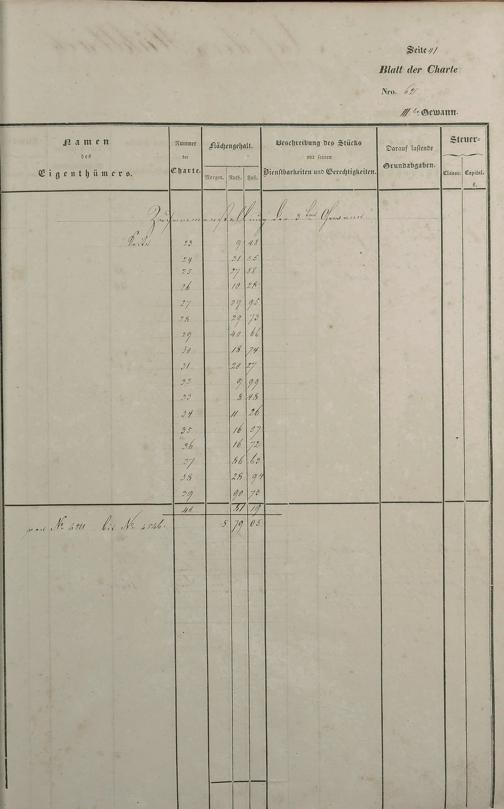 Seite 41
Blatt der Charte
Nro. 61
IIIte Gewann.
Namen des Eigenthümers.
Nummer der Charte.
Flächengehalt.
Morgen. Rth. Fuß.
Beschreibung des Stücks mit seinen Dienstbarkeiten und Gerechtigkeiten.
Darauf lastende Grundabgaben.
Steuer-
Classe. Capital.
Zusammenstellung der 3ten Gewann
Seite 23 9 48
24 21 55
25 27 58
26 10 28
27 27 95
28 29 73
29 40 66
30 18 74
31 20 27
32 9 99
33 8 48
34 11 26
35 16 27
36 16 72
37 86 63
38 28 94
39 90 73
40 51 19
von No bis No 5 79 05